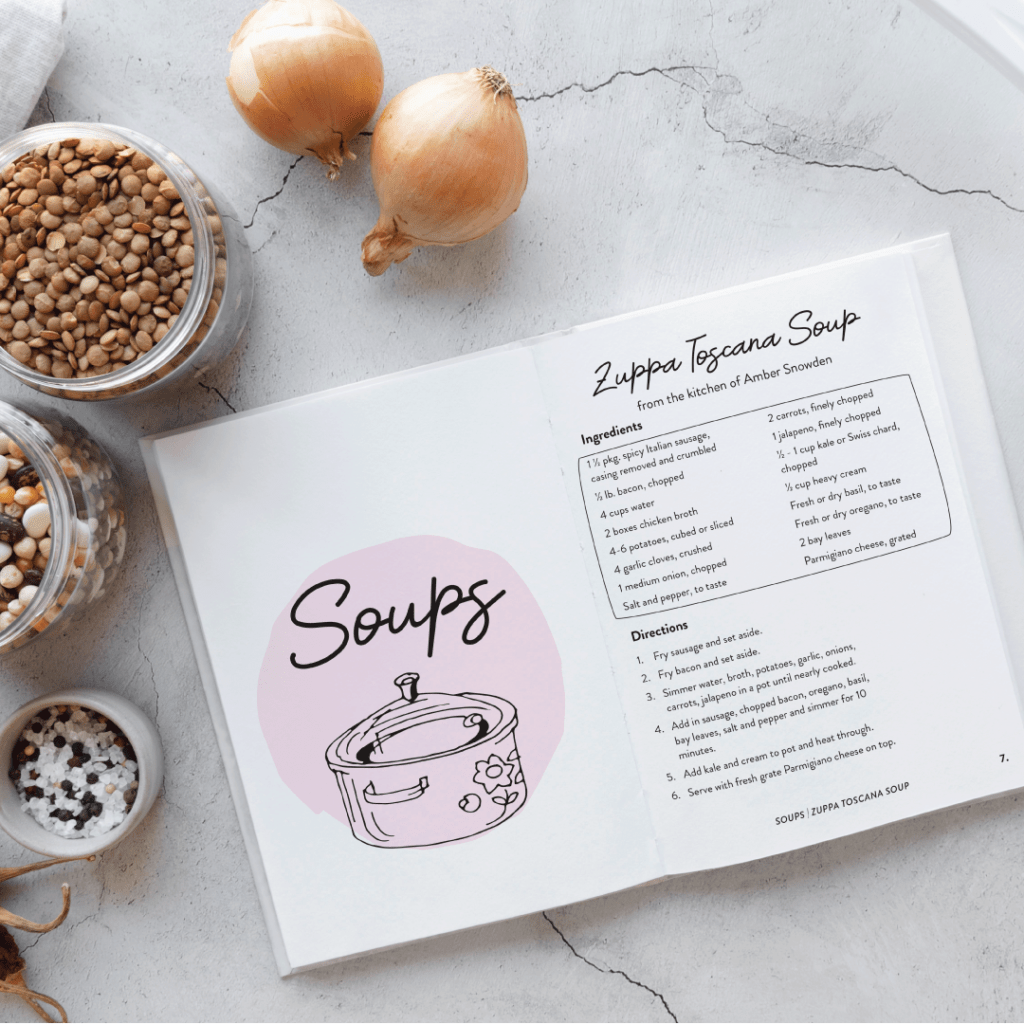 Soups
Zuppa Toscana Soup
from the kitchen of Amber Snowden
Ingredients
1 ½ pkg. spicy Italian sausage,
casing removed and crumbled
½ lb. bacon, chopped
4 cups water
2 boxes chicken broth
4-6 potatoes, cubed or sliced
4 garlic cloves, crushed
1 medium onion, chopped
Salt and pepper, to taste
2 carrots, finely chopped
1 jalapeno, finely chopped
½ - 1 cup kale or Swiss chard,
chopped
½ cup heavy cream
Fresh or dry basil, to taste
Fresh or dry oregano, to taste
2 bay leaves
Parmigiano cheese, grated
Directions
1. Fry sausage and set aside.
2. Fry bacon and set aside.
3. Simmer water, broth, potatoes, garlic, onions,
carrots, jalapeno in a pot until nearly cooked.
4. Add in sausage, chopped bacon, oregano, basil,
bay leaves, salt and pepper and simmer for 10
minutes.
5. Add kale and cream to pot and heat through.
6. Serve with fresh grate Parmigiano cheese on top.
7.
SOUPS | ZUPPA TOSCANA SOUP